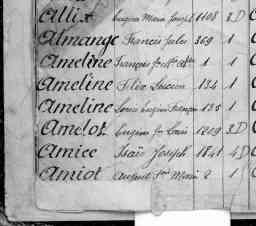 Allix Eugène Marie Joseph 1108 2 D
Almange Francis Jules 369 1
Ameline François 1 1
Ameline Lucien 134 1
Ameline Louis Eugène François 135 1
Amelot Eugène Louis 1209 3 D
Amice Isaïe Joseph 1841 4 D
Amiot August Marie 2 1